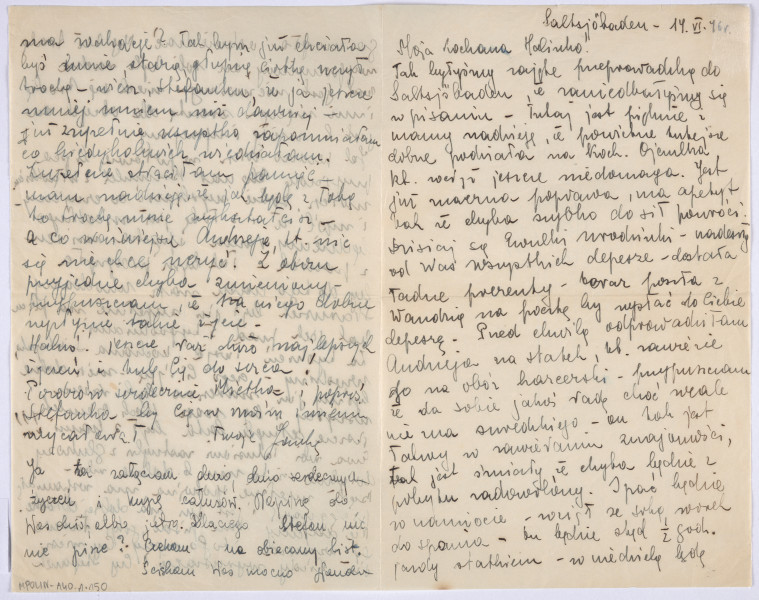 Saltsjöbaden - 14. VI. 46 r.
Moja kochana Halinko!
Tak byłyśmy zajęte przeprowadzką do
Saltsjöbaden, że zaniedbaliśmy się
w pisaniu - Tutaj jest pięknie i
mamy nadzieję, że powinno tutejsze
dobrze podziałać na Koch. Ojczulka
kt. wciąż jeszcze niedomaga. Jest
już znaczna poprawa, ma apetyt
tak że chyba szybko do sił powróci.
Dzisiaj są Ewulki urodzinki - nadeszły
od Was wszystkich depesze - dostała
ładne prezenty - zaraz poszła z
Wandzią na pocztę by wysłać do Ciebie
depeszę. Przed chwilą odprowadziłam
Andrzeja na statek, kt. zawiezie
go na obóz harcerski - przypuszczam
że da sobie jakoś radę choć wcale
nie zna szwedzkiego - on tak jest
łatwy w zawieraniu znajomości,
tak jest śmiały że chyba będzie z
pobytu zadowolony. Spać będzie
w namiocie - wziął ze sobą worek
do spania - on będzie stąd 1/2 godz.
jazdy statkiem - w niedzielę będę
ma wakacje? Tak bym już chciała
byś mnie starą głupią ciotkę
trochę - wiesz Stefanku, że ja jeszcze
mniej umiem niż dawniej -
już zupełnie wszystko zapomniałam
co kiedykolwiek wiedziałam.
Zupełnie straciłam pamięć -
mam nadzieję że jak będę z Tobą
to trochę mnie wykształcisz -
a co ważniejsze Andrzeja, kt. nic
się nie chce uczyć. Z obozu
przyjedzie chyba zmieniony -
przypuszczam, że na niego dobrze
wpłynie takie życie -
Halinko! jeszcze raz dużo najlepszych
życzeń i tulę Cię do serca
Pozdrów serdecznie Mietka i poproś
Stefanka - by Cię w moim imieniu
wycałował. Twoja
Ja - załączam dużo, dużo serdecznych
życzeń i moc całusów. Napiszę do
Was dziś albo jutro. Dlaczego Stefan nic
nie pisze? Czekam na obiecany list.
Ściskam Was mocno
MPOLIN-A40.1.150